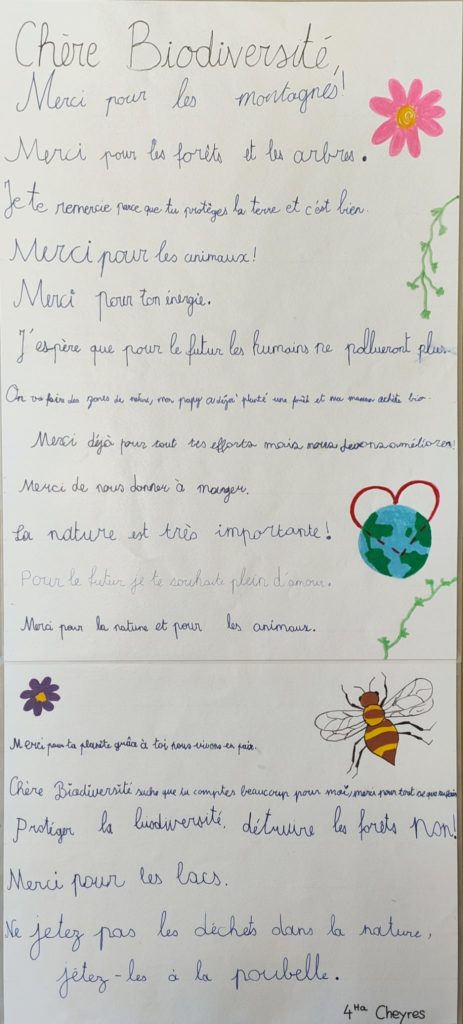 Chère Biodiversité,
Merci pour les montagnes!
Merci pour les forêts et les arbres.
Je te remercie parce que tu protèges la terre et c'est bien.
Merci pour les animaux!
Merci pour ton énergie.
J'espère que pour le futur les humains ne pollueront plus.
On va faire des zones de nature, mon papy a déjà planté une forêt et ma maman achète bio.
Merci déjà pour tout tes efforts mais nous devons améliorer!
Merci de nous donner à manger.
La nature est très importante!
Pour le futur je te souhaite plein d'amour.
Merci pour la nature et pour les animaux.
Merci pour ta planète grâce à toi nous vivons en paix.
Chère Biodiversité sache que tu comptes beaucoup pour moi, merci pour tout ce que
Protéger la biodiversité, détruire les forêts non!
Merci pour les lacs.
Ne jetez pas les déchets dans la nature,
jétez-les à la poubelle.
4Ha Cheyres